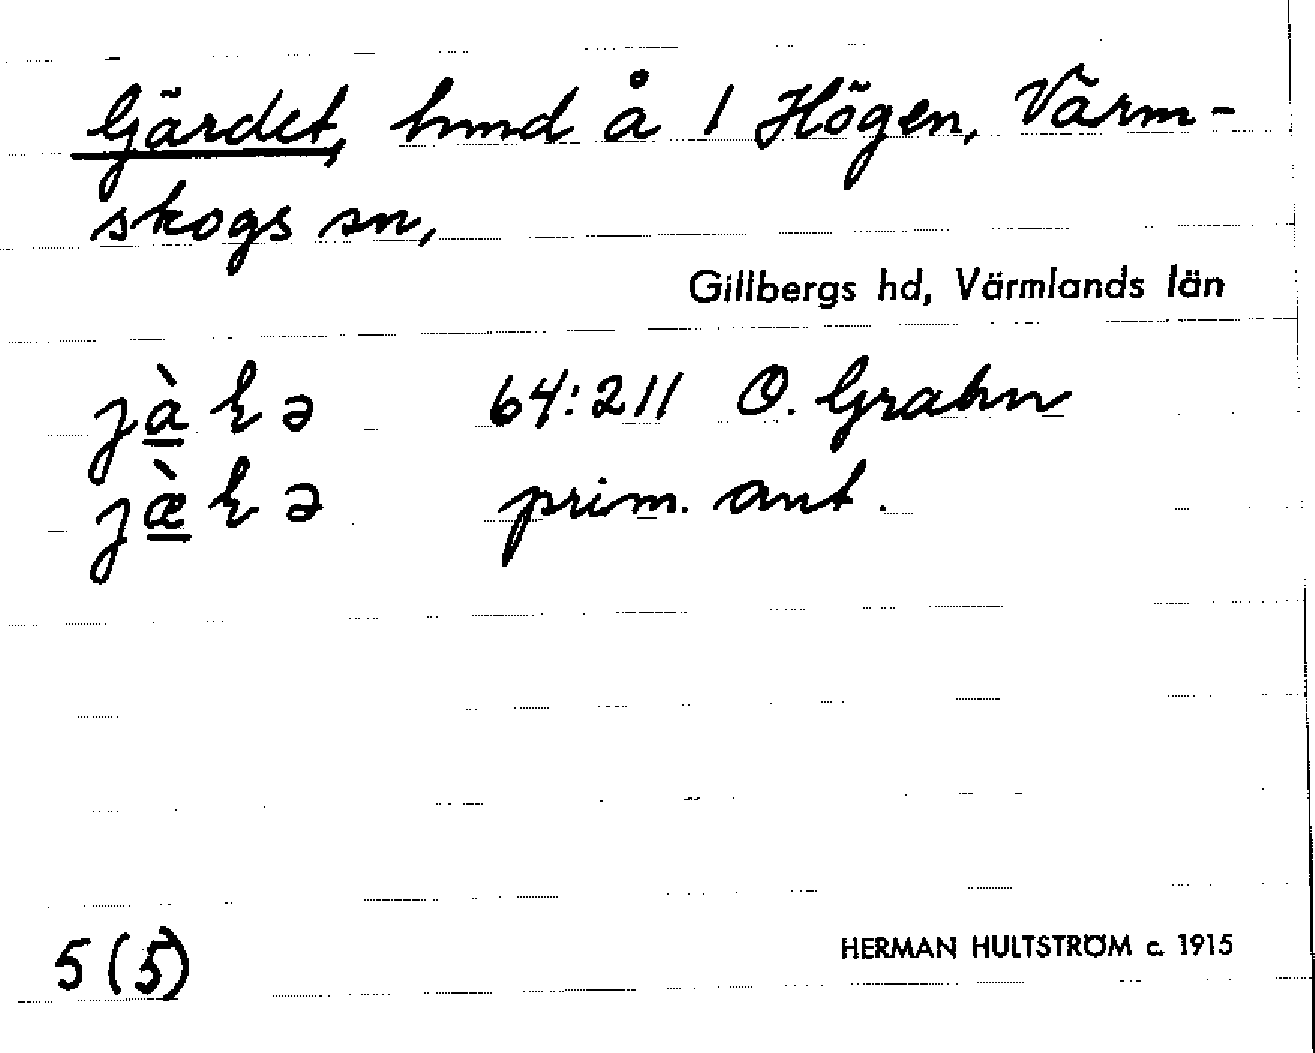 Gärdet, hmd å 1 Högen, Värm-
skogs sn,
Gillbergs hd, Värmlands län
64:211 O. Grahn
prim. ant.
5 (5)
HERMAN HULTSTRÖM c. 1915